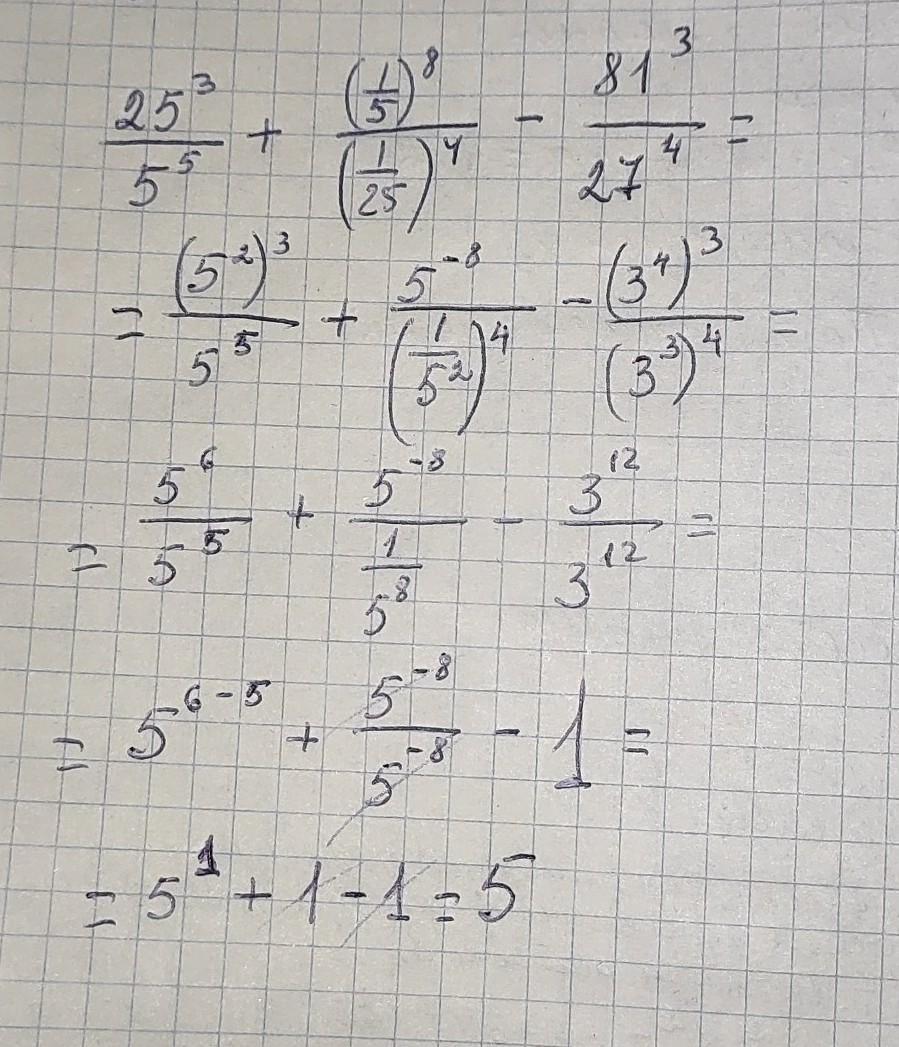 25³/5⁵ + (1/5)⁸/(1/25)⁴ - 81³/27⁴ =
= (5²)³/5⁵ + 5⁻⁸/(1/5²)⁴ - (3⁴)³/(3³)⁴ =
= 5⁶/5⁵ + 5⁻⁸/(1/5⁸) - 3¹²/3¹² =
= 5⁶⁻⁵ + 5⁻⁸/5⁻⁸ - 1 =
= 5¹ + 1 - 1 = 5